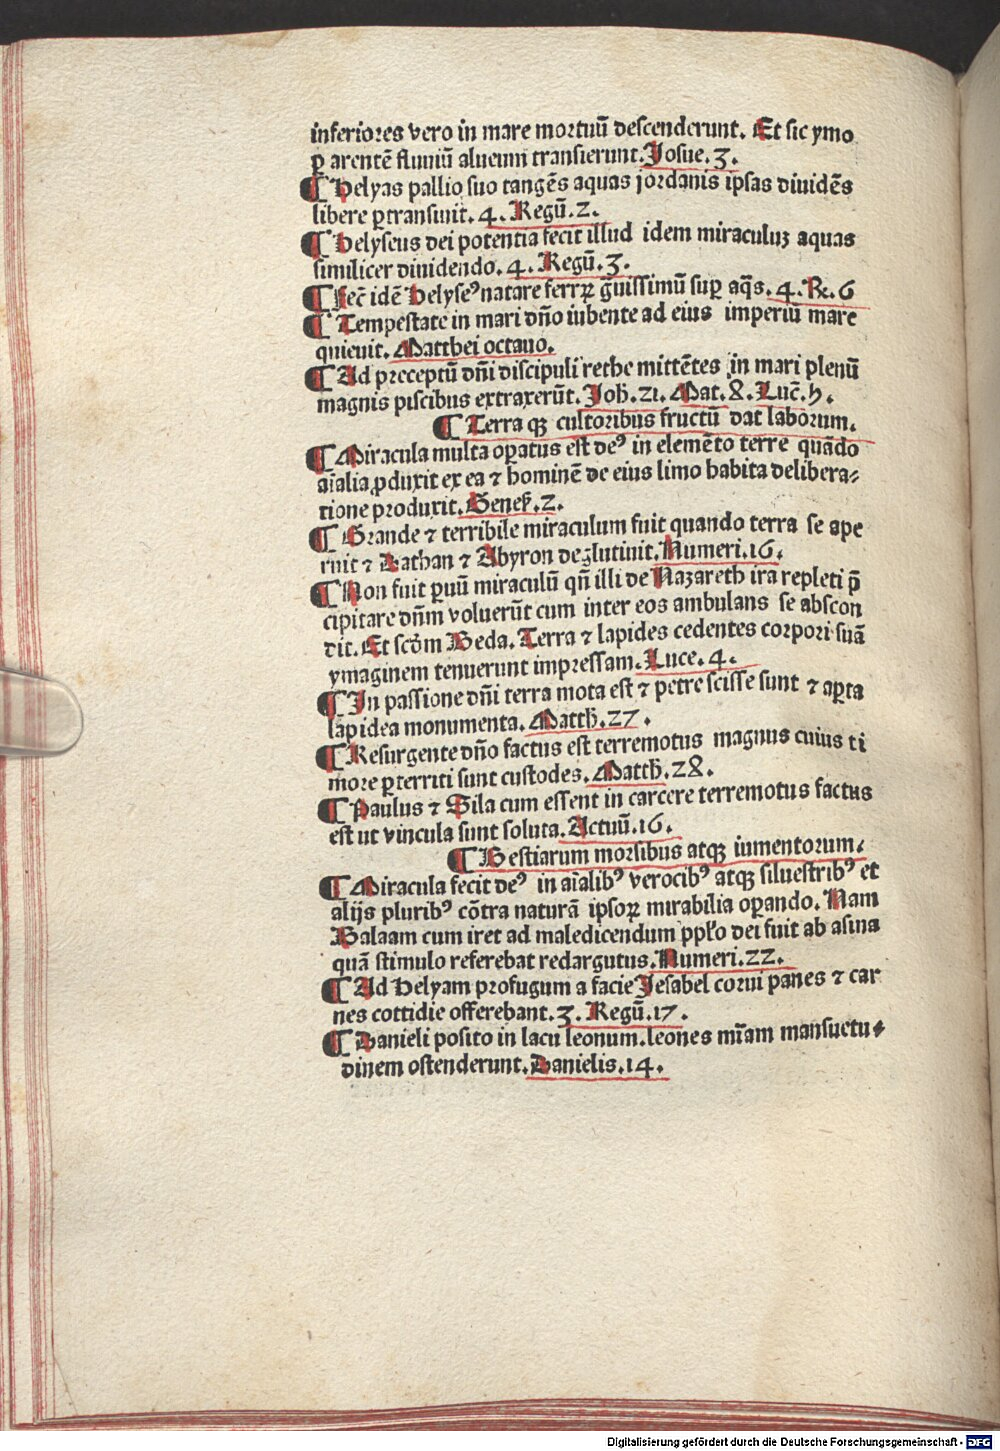 inferiores vero in mare mortuū descenderunt. Et sic ymo
ꝑ arentē fluuiū alueum transierunt. Josue. 3.
¶ Helyas pallio suo tangēs aquas jordanis ipsas diuidēs
libere ꝑtransiuit. 4. Regū. 2.
¶ Helyseus dei potentia fecit illud idem miraculuꝫ aquas
similicer diuidendo. 4. Regū. 3.
¶ Fec̄ idē Helyseꝰ natare ferrꝝ g̃uissimū suꝑ aq̃s. 4. R. 6
¶ Tempestate in mari dño iubente ad eius imperiū mare
quieuit. Matthei octauo.
¶ Ad preceptū dñi discipuli rethe mittētes in mari plenū
magnis piscibus extraxerūt. Joh̄. 21. Mat. 8. Luc̄. 5.
¶ Terra qꝫ cultoribus fructū dat laborum.
¶ Miracula multa oꝑatus est deꝰ in elemēto terre quādo
aīalia ꝓduxit ex ea ⁊ hominē de eius limo habita delibera⸗
tione produxit. Genes̄. 2.
¶ Grande ⁊ terribile miraculum fuit quando terra se ape
ruit ⁊ Dathan ⁊ Abyron deglutiuit. Numeri. 16.
¶ Non fuit ꝑuū miraculū qñ illi de Nazareth ira repleti p̄
cipitare dñm voluerūt cum inter eos ambulans se abscon
dit. Et scđm Beda. Terra ⁊ lapides cedentes corpori suā
ymaginem tenuerunt impressam. Luce. 4.
¶ In passione dñi terra mota est ⁊ petre scisse sunt ⁊ aꝑta
lapidea monumenta. Matth̄. 27.
¶ Resurgente dño factus est terremotus magnus cuius ti
more ꝑterriti sunt custodes. Matth̄. 28.
¶ Paulus ⁊ Sila cum essent in carcere terremotus factus
est ut vincula sunt soluta. Actuū. 16.
¶ Bestiarum morsibus atqꝫ iumentorum.
¶ Miracula fecit deꝰ in aīalibꝰ verocibꝰ atqꝫ siluestribꝰ et
alijs pluribꝰ cōtra naturā ipsoꝝ mirabilia oꝑando. Nam
Balaam cum iret ad maledicendum ppło dei fuit ab asina
quā stimulo referebat redargutus. Numeri. 22.
¶ Ad Helyam profugum a facie Jesabel corui panes ⁊ car
nes cottidie offerebant. 3. Regū. 17.
¶ Danieli posito in lacu leonum. leones mīam mansuetu⸗
dinem ostenderunt. Danielis. 14.
Digitalisierung gefördert durch die Deutsche Forschungsgemeinschaft - DFG